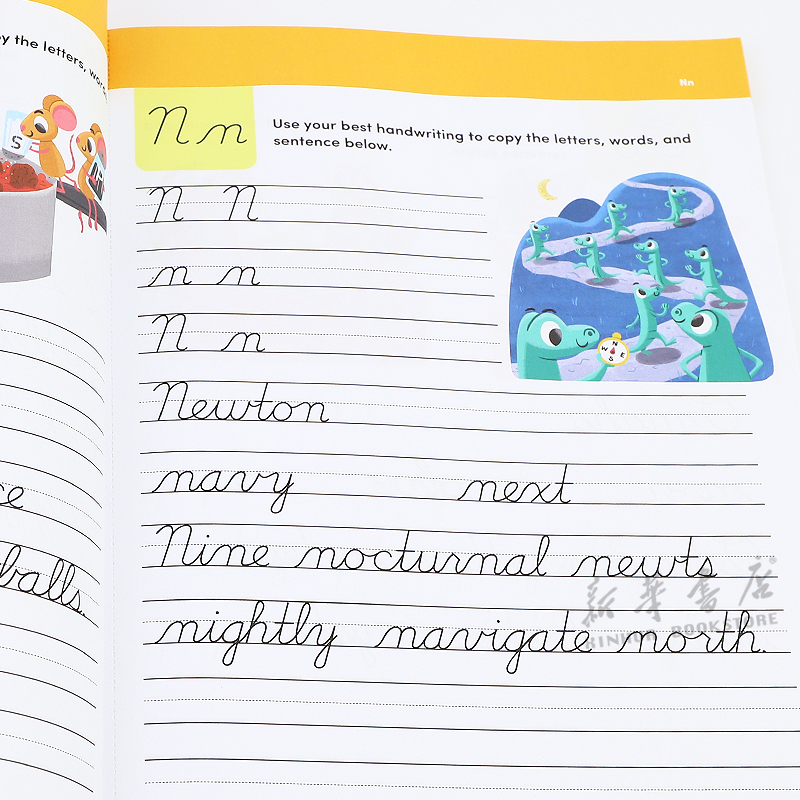 y the letters, wor
S
ce
balls.
Nn
N n
Use your best handwriting to copy the letters, words, and
sentence below.
N N
n n
N n
Newton
navy next
Nine nocturnal newts
nightly navigate north.
N
W E
S
新华书店
XINHUA BOOKSTORE